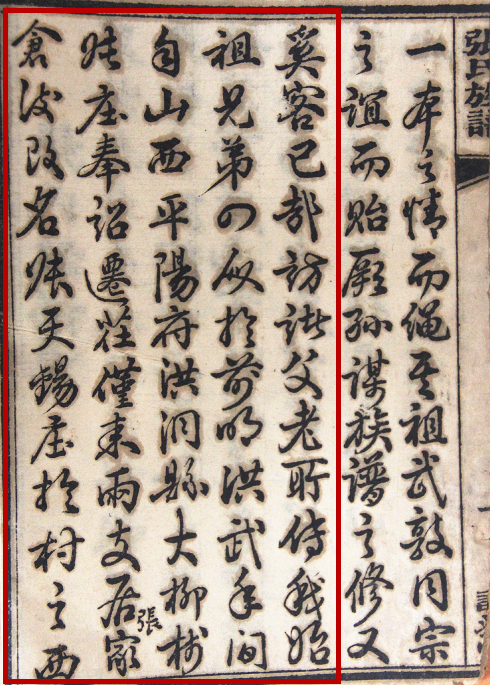 張氏族譜
一本之情而繩其祖武敦同宗
之誼而貽厥孫謀族譜之修又
奚容已哉訪諸父老所傳我始
祖兄弟四人於前明洪武年間
自山西平陽府洪洞縣大柳樹
張庄奉詔遷茌僅來兩支居張家
倉後改名張天錫庄於村之西